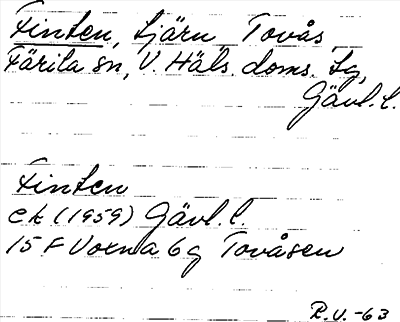 Finten, tjärn, Tovås,
Färila sn, V. Häls. doms. tg,
Gävl. l.
Finten
ek (1959) Gävl. l.
15 F Voxna 6g Tovåsen
R.V. -63